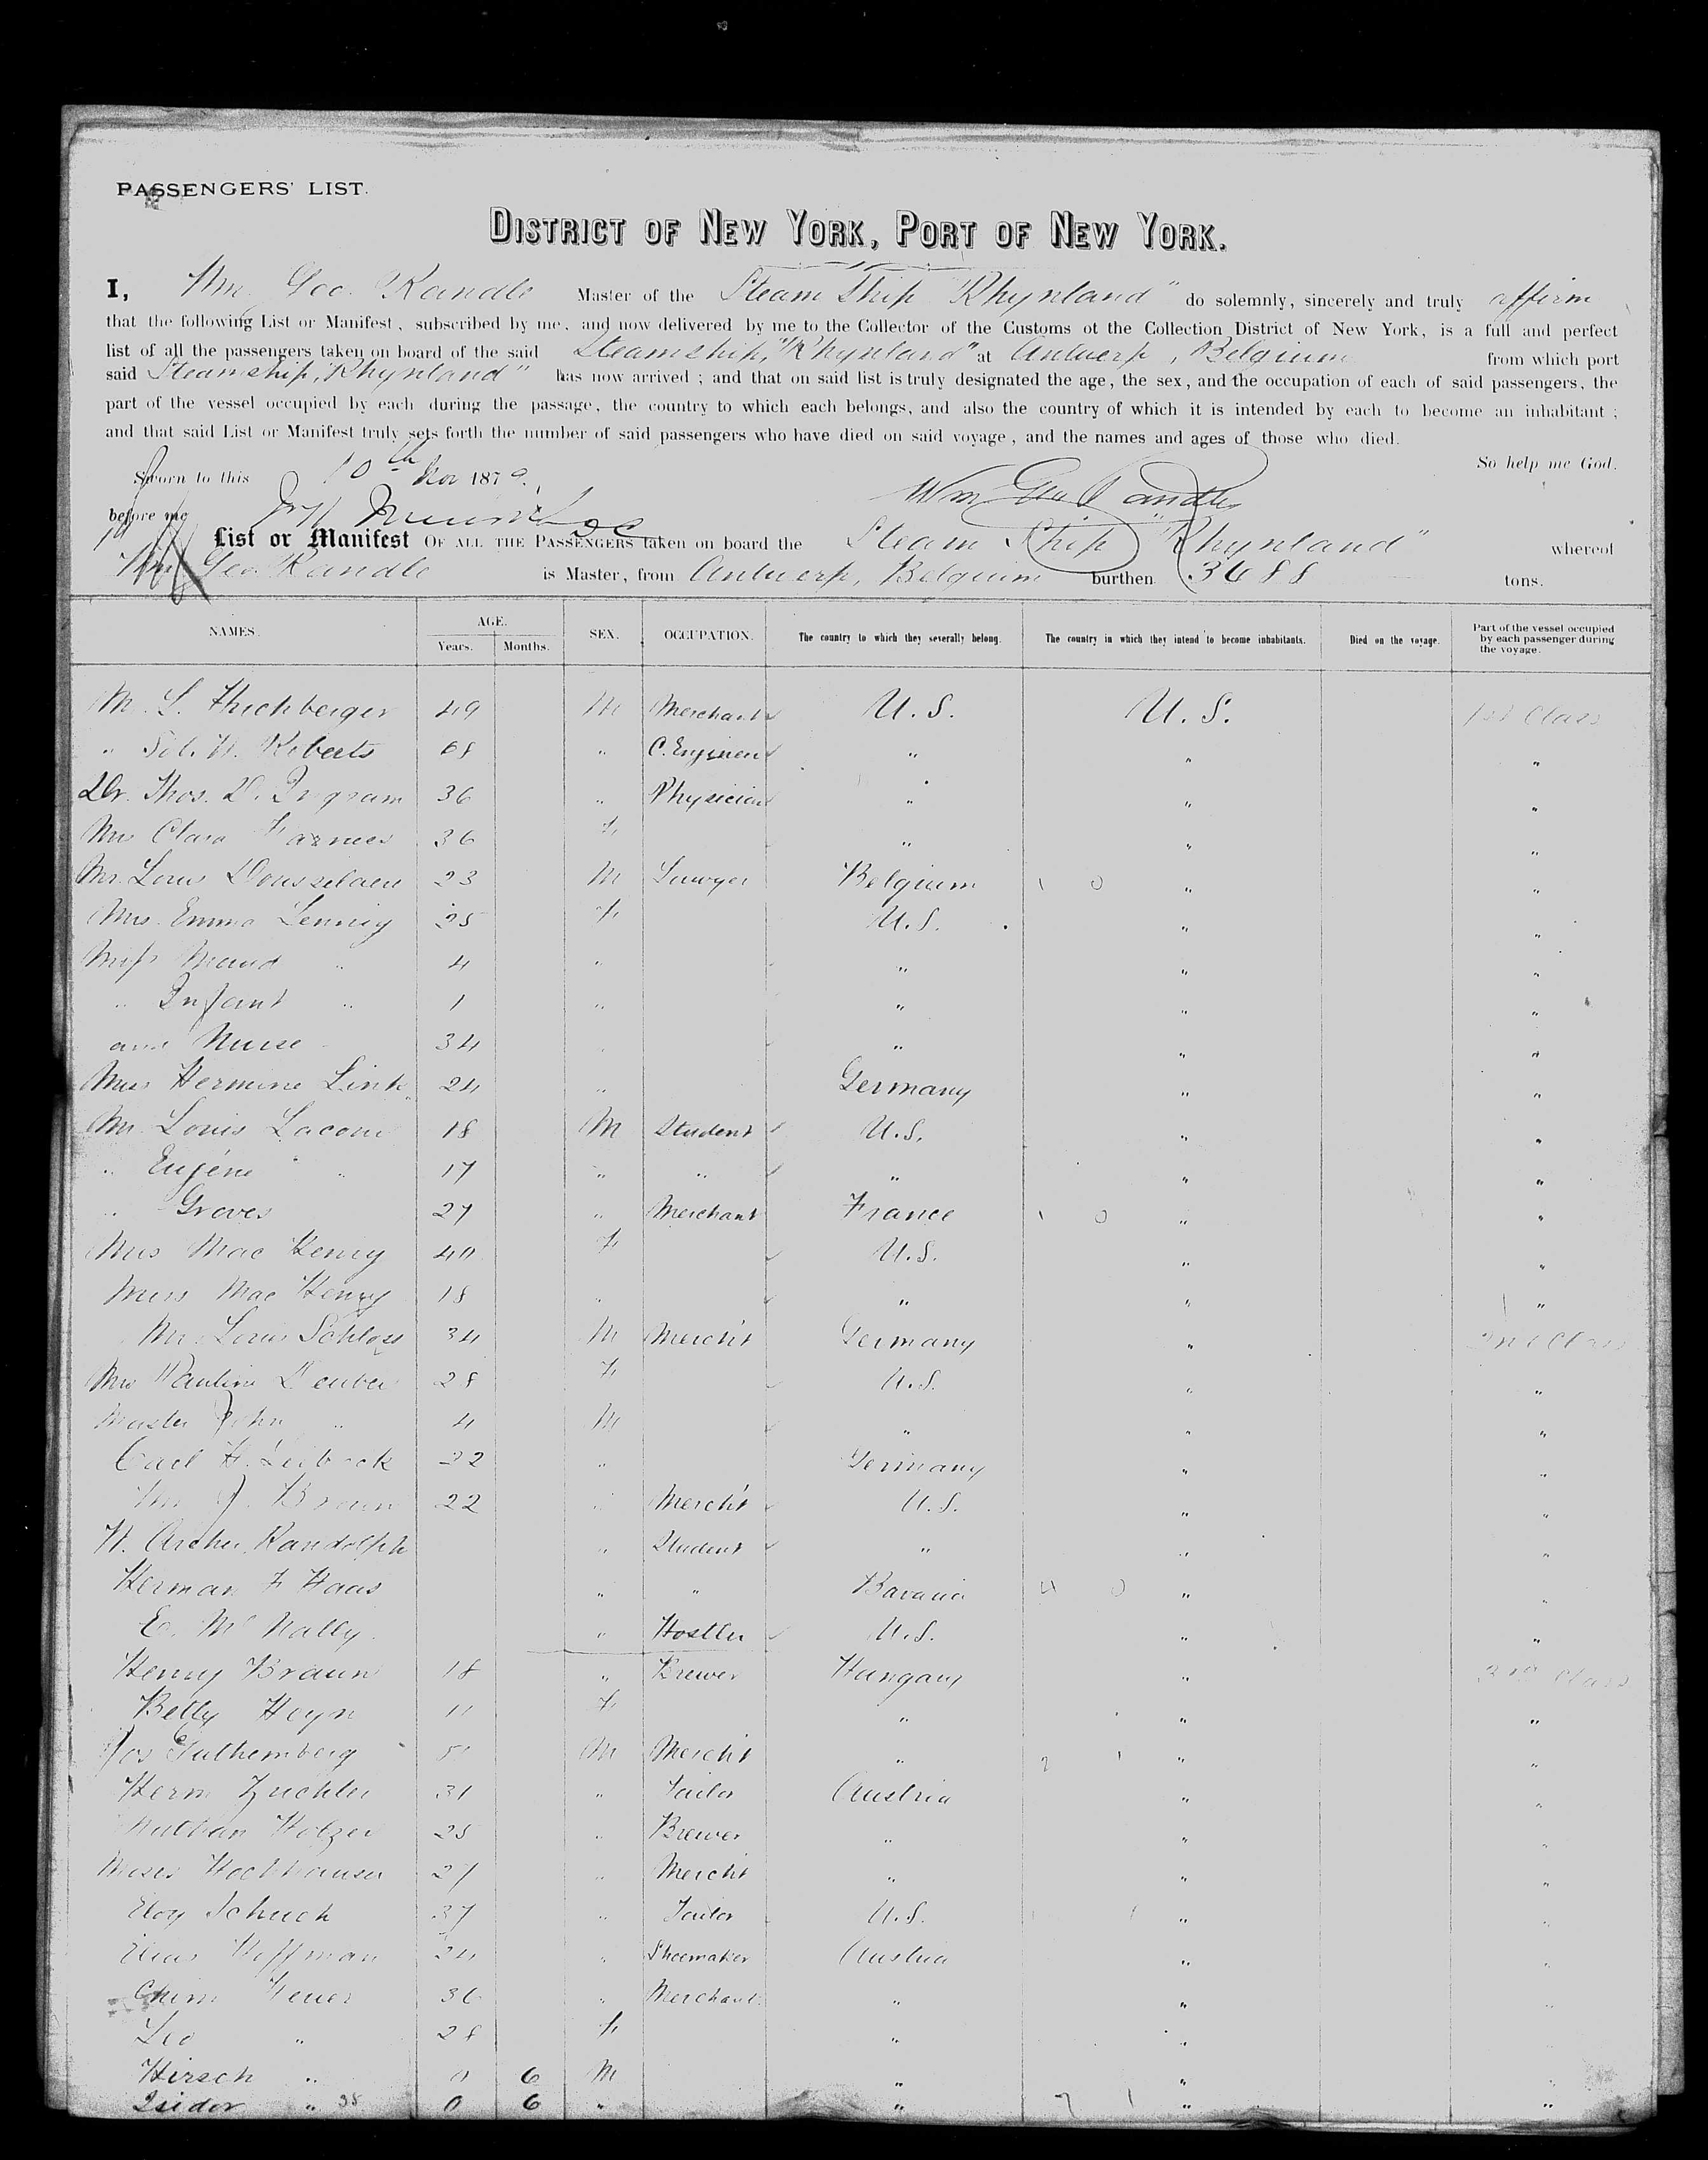 PASSENGERS' LIST.
DISTRICT OF NEW YORK, PORT OF NEW YORK.
I, Wm. Geo. Randle Master of the Steam Ship "Rhynland" do solemnly, sincerely and truly affirm
that the following List or Manifest, subscribed by me, and now delivered by me to the Collector of the Customs ot the Collection District of New York, is a full and perfect
list of all the passengers taken on board of the said Steamship, "Rhynland" at Antwerp, Belgium from which port
said Steamship, "Rhynland" has now arrived; and that on said list is truly designated the age, the sex, and the occupation of each of said passengers, the
part of the vessel occupied by each during the passage, the country to which each belongs, and also the country of which it is intended by each to become an inhabitant;
and that said List or Manifest truly sets forth the number of said passengers who have died on said voyage, and the names and ages of those who died.
So help me God.
Sworn to this 10th Nov 1879.
Wm Geo Randle
before me
List or Manifest OF ALL THE PASSENGERS taken on board the Steam Ship "Rhynland" whereof
Wm. Geo. Randle is Master, from Antwerp, Belgium burthen 3688 tons.
NAMES. AGE. Years. Months. SEX. OCCUPATION. The country to which they severally belong. The country in which they intend to become inhabitants. Died on the voyage. Part of the vessel occupied by each passenger during the voyage.
M. L. 49 M Merchant U.S. U.S. 1st Class
" Sol. W. Roberts 68 " C. Engineer " " "
Dr. Thos. D. Ingram 36 " Physician " " "
Mrs Clara 36 F " " "
Mr. Louis 23 M Lawyer Belgium 1 0 " "
Mrs. Emma Lennig 25 F U.S. " "
Miss Maud " 4 " " " "
" Infant " 1 " " " "
and Nurse 34 " " " "
Miss Hermine Link 24 " Germany " "
Mr. Louis Lacome 18 M Student U.S. " "
" Eugene " 17 " " " " "
" Groves 27 " Merchant France 1 0 " "
Mrs Mac Henry 40 F U.S. " "
Miss Mac Henry 18 " " " "
Mr. Louis Schloss 34 M Merch't Germany " 2nd Class
Mrs Pauline Deuber 28 F U.S. " "
Master John " 4 M " " "
Carl F. 22 " Germany " "
J. Braun 22 " Merch't U.S. " "
W. Archer Randolph " Student " " "
Herman F Haas " " Bavaria 4 0 " "
E. McNally " Hostler U.S. " "
Henry Braun 18 " Brewer Hungary " 3rd Class
Betty Heyn 11 F " " "
Jos Guthemberg M Merch't " 2 1 " "
Herm Zuchler 31 " Tailor Austria " "
Nathan Holzer 25 " Brewer " " "
Moses Hochhauser 27 " Merch't " " "
Eloy Schuch 37 " Tailor U.S. " "
Elias Hoffman 24 " Shoemaker Austria " "
Chim Feuer 36 " Merchant " " "
Leo " 28 F " " "
Hirsch " 0 6 M " " "
Isidor " 35 0 6 " " 7 1 " "